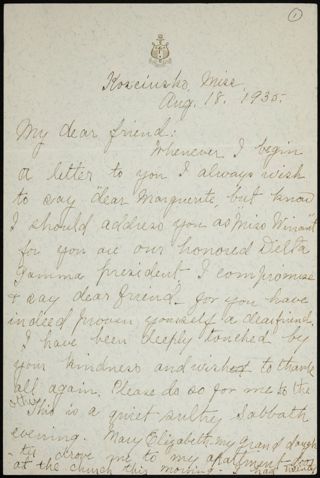 1
Kosciusko, Miss
Aug. 18. 1935.
My dear friend:
Whenever I begin
a letter to you I always wish
to say "dear Marguerite," but know
I should address you as Miss Winant
for you are our honored Delta
Gamma president I compromise
+ say dear friend. for you have
indeed proven yourself a dear friend.
I have been deeply touched by
your kindness and wish to thank
all again. Please do so for me to the
This is a quiet sultry Sabbath
evening. Mary Elizabeth, my grand daugh
ter drove me to my apartment
at the church this morning. I had twenty